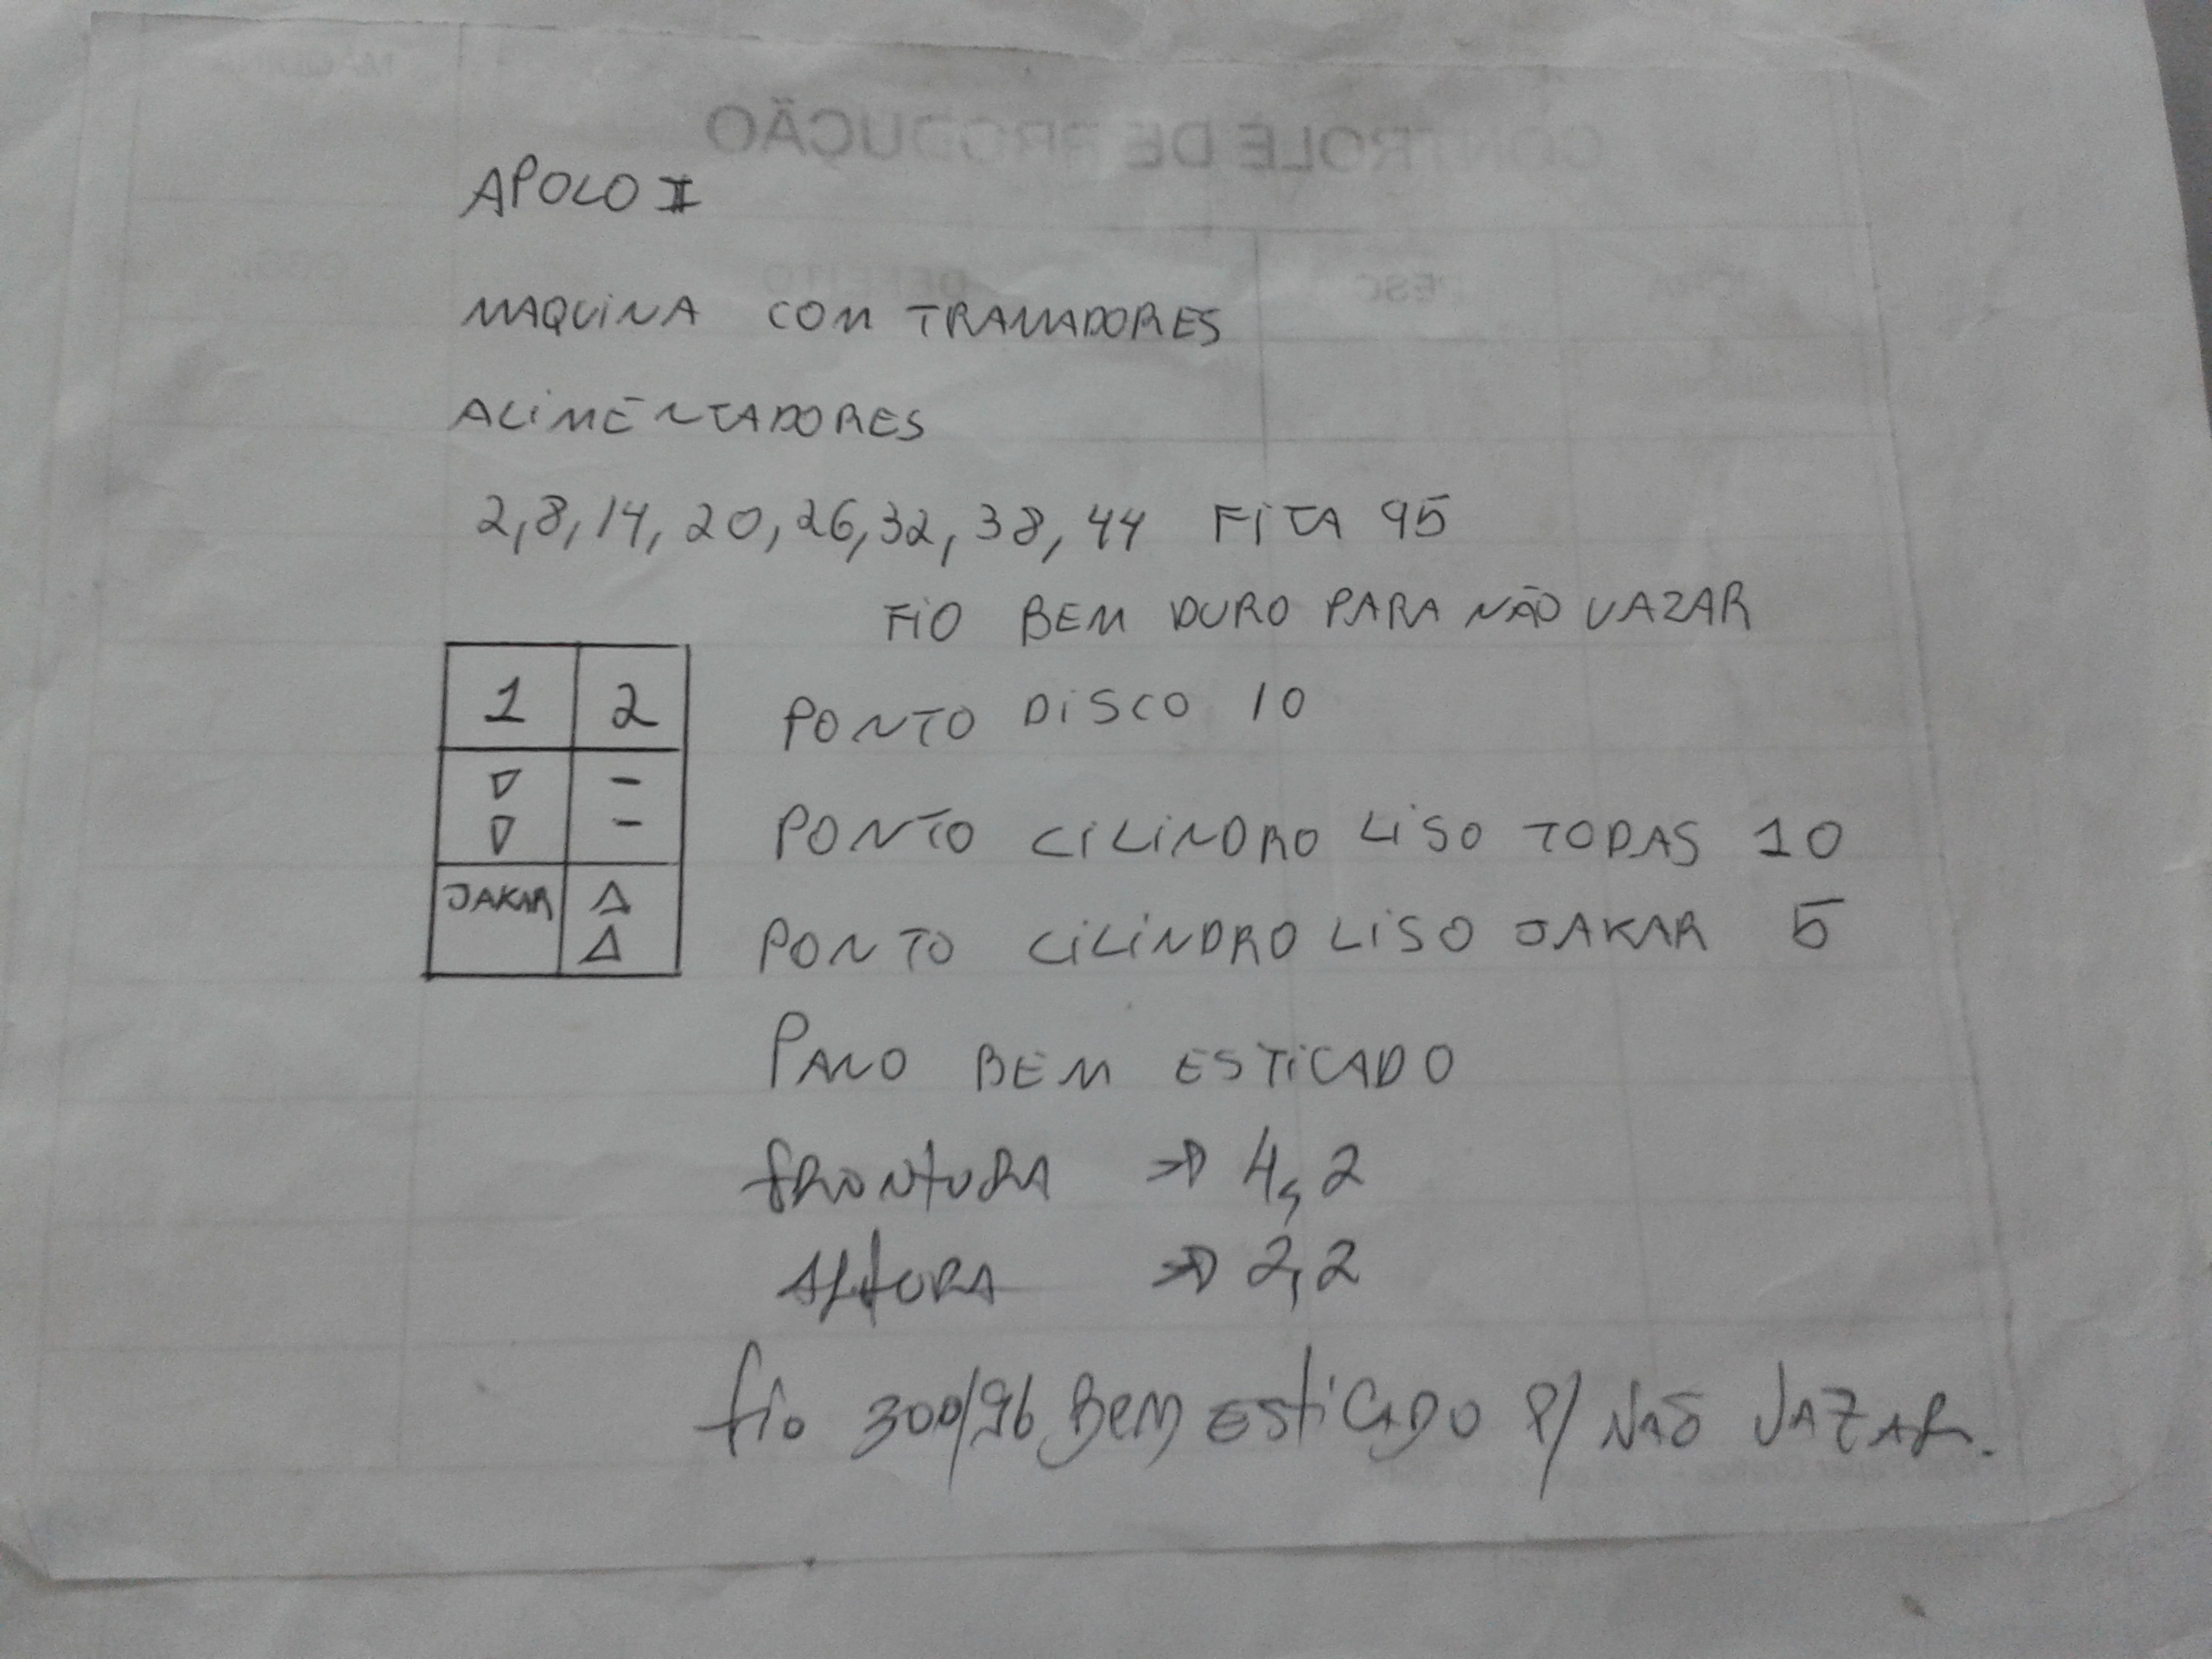 APOLO II
MAQUINA COM TRAMADORES
ALIMENTADORES
2,8,14,20,26,32,38,44 FITA 95
FIO BEM DURO PARA NÃO VAZAR
1 2
PONTO DISCO 10
▽ –
▽ –
PONTO CILINDRO LISO TODAS 10
JAKAR △
△
PONTO CILINDRO LISO JAKAR 5
PANO BEM ESTICADO
FRONTURA → 4,2
ALTURA → 2,2
fio 300/96 BEM ESTICADO P/ NÃO VAZAR.
CONTROLE DE PRODUÇÃO
DEFEITO